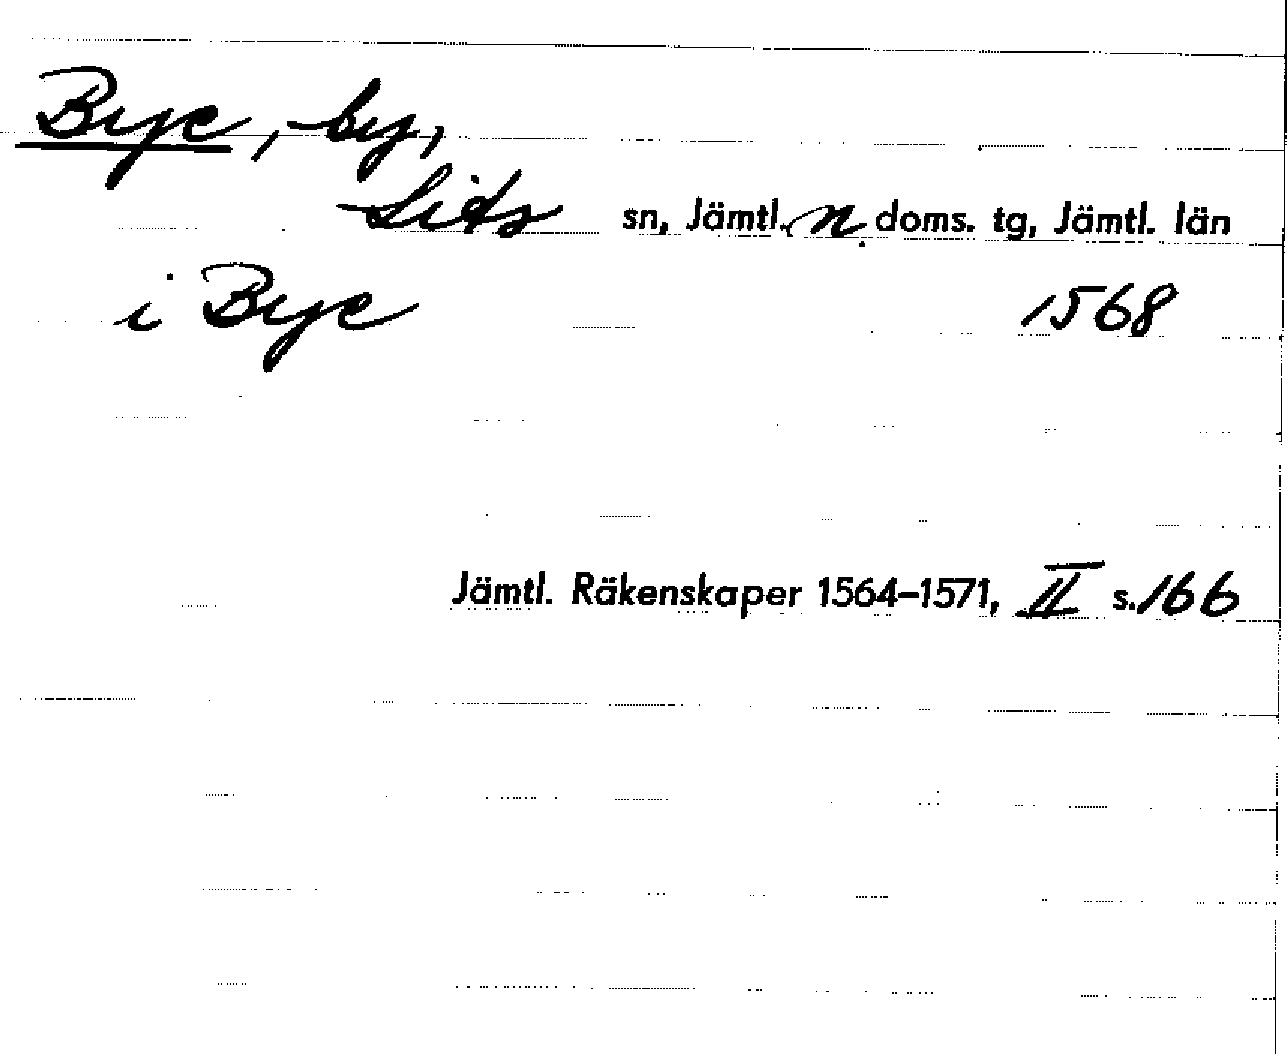 Bye, by,
Lits sn, Jämtl. n. doms. tg, Jämtl. län
i Bye 1568
Jämtl. Räkenskaper 1564–1571, II s. 166